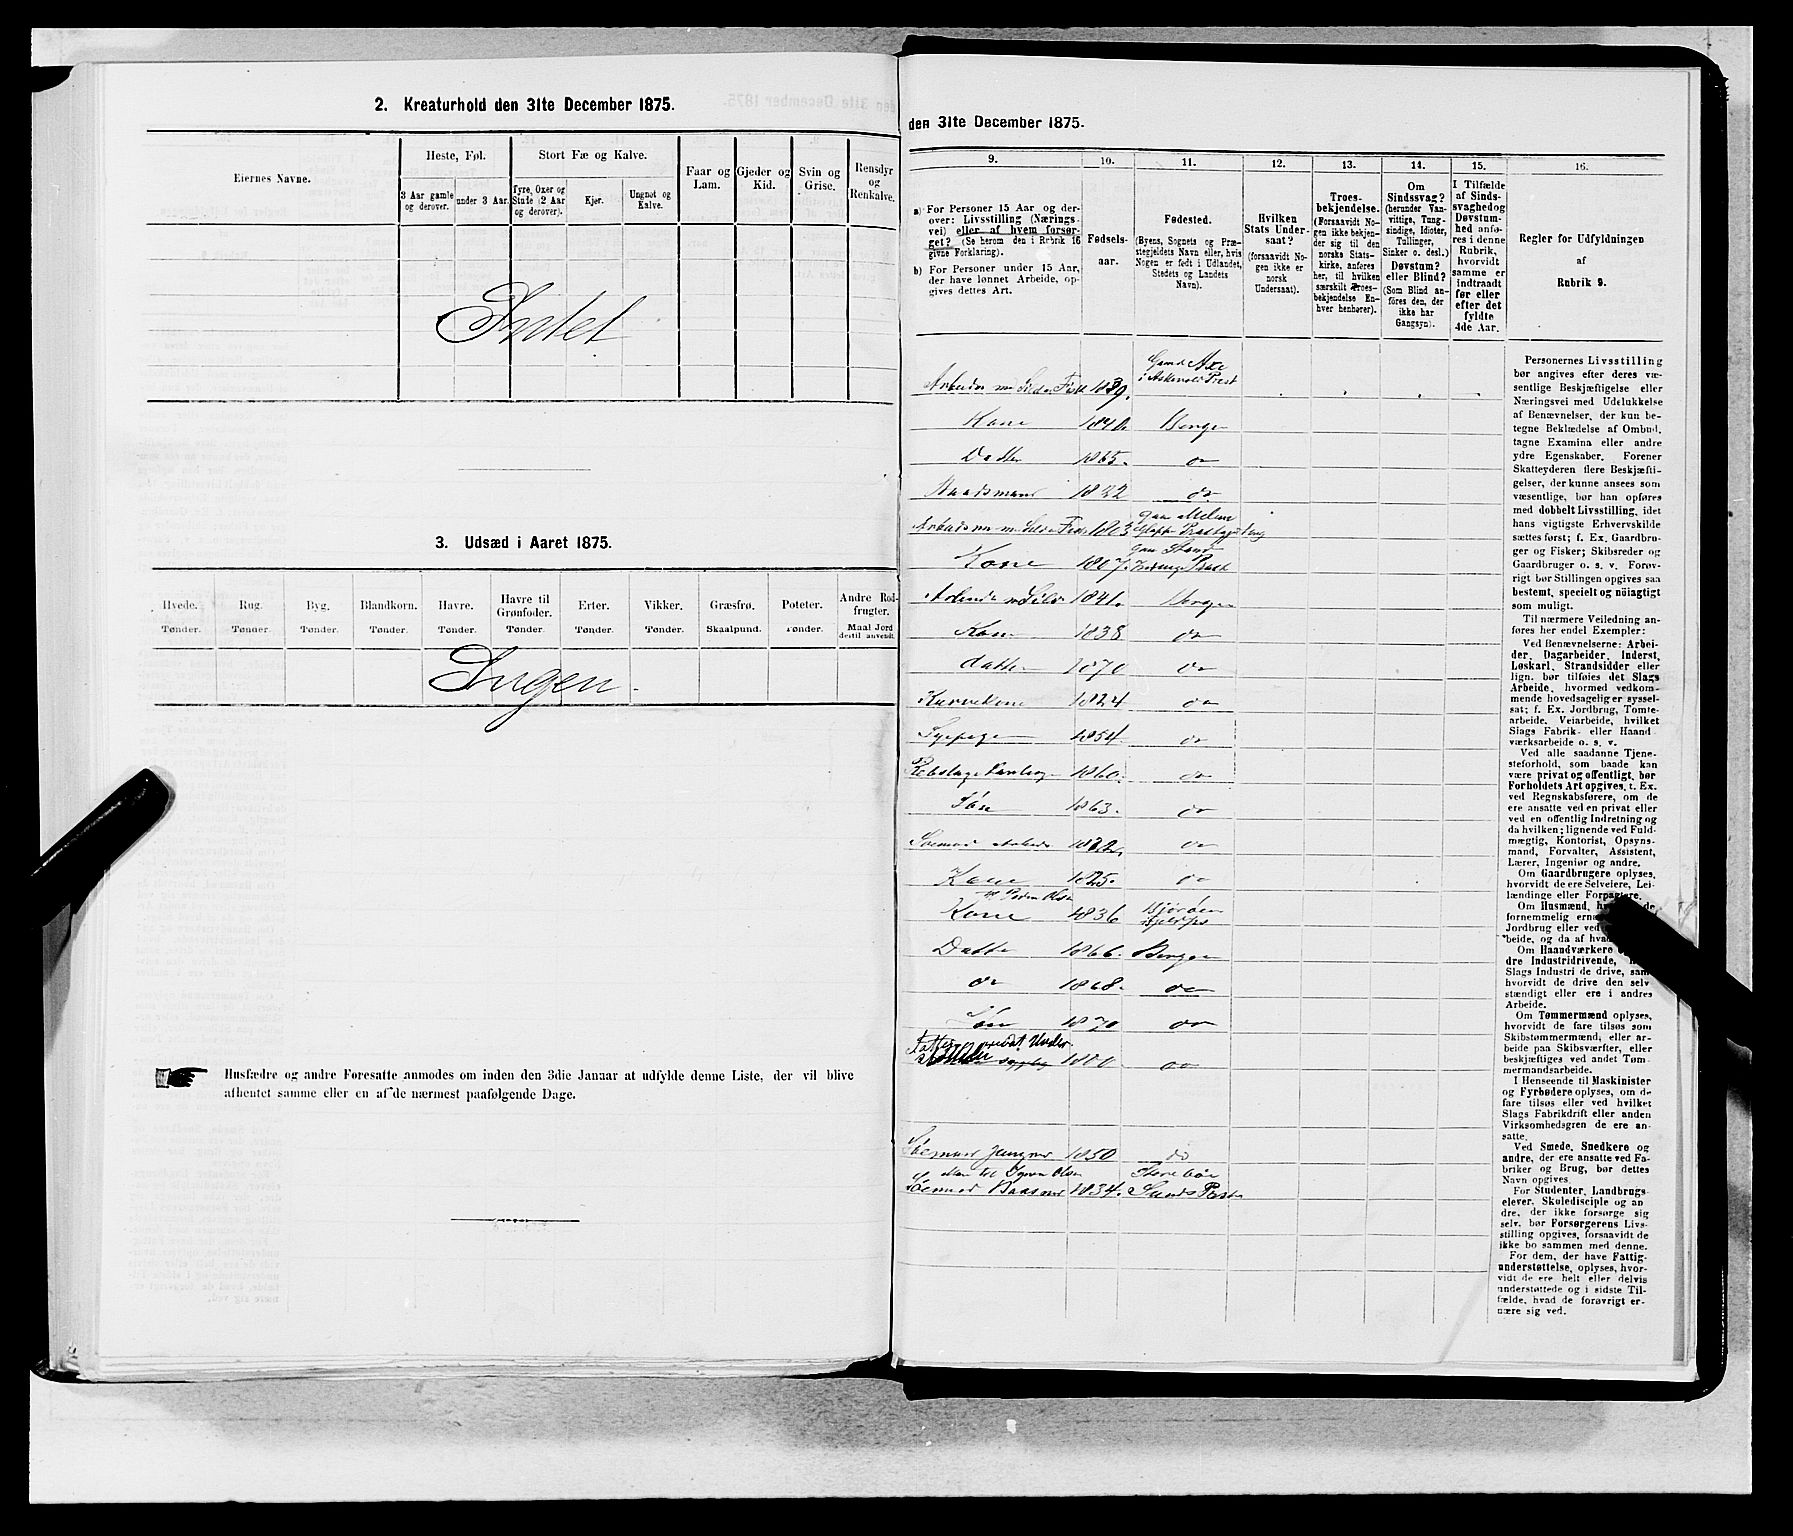 2. Kreaturhold den 31te December 1875.
Eiernes Navne.
Heste, Føl.
Stort Fæ og Kalve.
Faar og Lam.
Gjeder og Kid.
Svin og Grise.
Rensdyr og Renkalve.
3 Aar gamle og derover.
under 3 Aar.
Tyre, Oxer og Stude (2 Aar og derover).
Kjer.
Ungnøt og Kalve.
Intet
3. Udsæd i Aaret 1875.
Hvede.
Rug.
Byg.
Blandkorn.
Havre.
Havre til Grønfoder.
Erter.
Vikker.
Græsfrø.
Poteter.
Andre Rodfrugter.
Tønder.
Tønder.
Tønder.
Tønder.
Tønder.
Tønder.
Tønder.
Tønder.
Skaalpund.
Tønder.
Maal Jord dertil anvendt.
Ingen.
Husfædre og andre Foresatte anmodes om inden den 3die Januar at udfylde denne Liste, der vil blive
afhentet samme eller en af de nærmest paafølgende Dage.
den 31te December 1875.
9.
10.
11.
12.
13.
14.
15.
16.
a) For Personer 15 Aar og derover: Livsstilling (Næringsvei) eller af hvem forsørget? (Se herom den i Rubrik 16 givne Forklaring).
b) For Personer under 15 Aar, der have lønnet Arbeide, opgives dettes Art.
Fødselsaar.
Fødested.
(Byens, Sognets og Præstegjeldets Navn eller, hvis Nogen er født i Udlandet, Stedets og Landets Navn).
Hvilken Stats Undersaat?
(forsaavidt Nogen ikke er norsk Undersaat).
Troesbekjendelse.
(Forsaavidt Nogen ikke bekjender sig til den norske Statskirke, anføres her, til hvilken særskilt Troesbekjendelse Enhver henhører).
Om Sindssvag?
(herunder Vanvittige, Tungsindige, Idioter, Tullinger, Sinker o. desl.)
Døvstum?
eller Blind?
(Som Blind anføres den, der ikke har Gangsyn).
I Tilfælde af Sindssvaghed og Døvstumhed anføres i denne Rubrik, hvorvidt samme er indtraadt før eller efter det fyldte 4de Aar.
Regler for Udfyldningen
af
Rubrik 9.
Arbeider m Silde Fisk 1839. i Askevold Prest
Kone 1840. Bergen
Datter 1865. do
1822 do
Arbeidsm m Silde Fisk 1803
Kone 1807.
Arbeider m Sild 1841. Bergen
Kone 1838 do
datter 1870 do
1824 do
Syepige 1854. do
1860. do
Søn 1863. do
Sømand Arbeide 1832. do
Kone 1825. do
Kone 1836
Datter 1866. Bergen
do 1868. do
Søn 1870 do
1800 do
Sømand Jungm 1850 do
Sømand Baadsm 1834. Sunds Prest
Personernes Livsstilling
bør angives efter deres væsentlige Beskjæftigelse eller
Næringsvei med Udelukkelse
af Benævnelser, der kun betegne Beklædelse af Ombud,
tagne Examina eller andre
ydre Egenskaber. Forener
Skatteyderen flere Beskjæftigelser, der kunne ansees som
væsentlige, bør han opføres
med dobbelt Livsstilling, idet
hans vigtigste Erhvervskilde
sættes først; f. Ex. Gaardbruger og Fisker; Skibsreder og
Gaardbruger o. s. v. Forøvrigt bør Stillingen opgives saa
bestemt, specielt og nøiagtigt
som muligt.
Til nærmere Veiledning anføres her endel Exempler:
Ved Benævnelserne: Arbeider, Dagarbeider, Inderst,
Løskarl, Strandsidder eller
lign. bør tilføies det Slags
Arbeide, hvormed vedkommende hovedsagelig er sysselsat; f. Ex. Jordbrug, Tomtearbeide, Veiarbeide, hvilket
Slags Fabrik- eller Haandværksarbeide o. s. v.
Ved alle saadanne Tjenesteforhold, som baade kan
være privat og offentligt, bør
Forholdets Art opgives, t. Ex.
ved Regnskabsførere, om de
ere ansatte ved en privat eller
ved en offentlig Indretning og
da hvilken; lignende ved Fuldmægtig, Kontorist, Opsynsmand, Forvalter, Assistent,
Lærer, Ingeniør og andre.
Om Gaardbrugere oplyses,
hvorvidt de ere Selveiere, Leilændinge eller Forpagtere.
Om Husmænd,
fornemmelig
Jordbrug eller ved
beide, og da af
Om Haandværkere
dre Industridrivende,
Slags Industri de drive, samt
hvorvidt de drive den selvstændigt eller ere i andres
Arbeide.
Om Tømmermænd oplyses,
hvorvidt de fare tilsøs som
Skibstømmermænd, eller arbeide paa Skibsværfter, eller
beskjæftiges ved andet Tømmermandsarbeide.
I Henseende til Maskinister
og Fyrbødere oplyses, om de
fare tilsøs eller ved hvilket
Slags Fabrikdrift eller anden
Virksomhedsgren de ere ansatte.
Ved Smede, Snedkere og
andre, der ere ansatte ved Fabriker og Brug, bør dettes
Navn opgives.
For Studenter, Landbrugselever, Skoledisciple og andre, der ikke forsørge sig
selv, bør Forsørgerens Livsstilling opgives, forsaavidt de
ikke bo sammen med denne.
For dem, der have Fattigunderstøttelse, oplyses, hvorvidt de ere helt eller delvis
understøttede og i sidste Tilfælde, hvad de forøvrigt ernære sig ved.